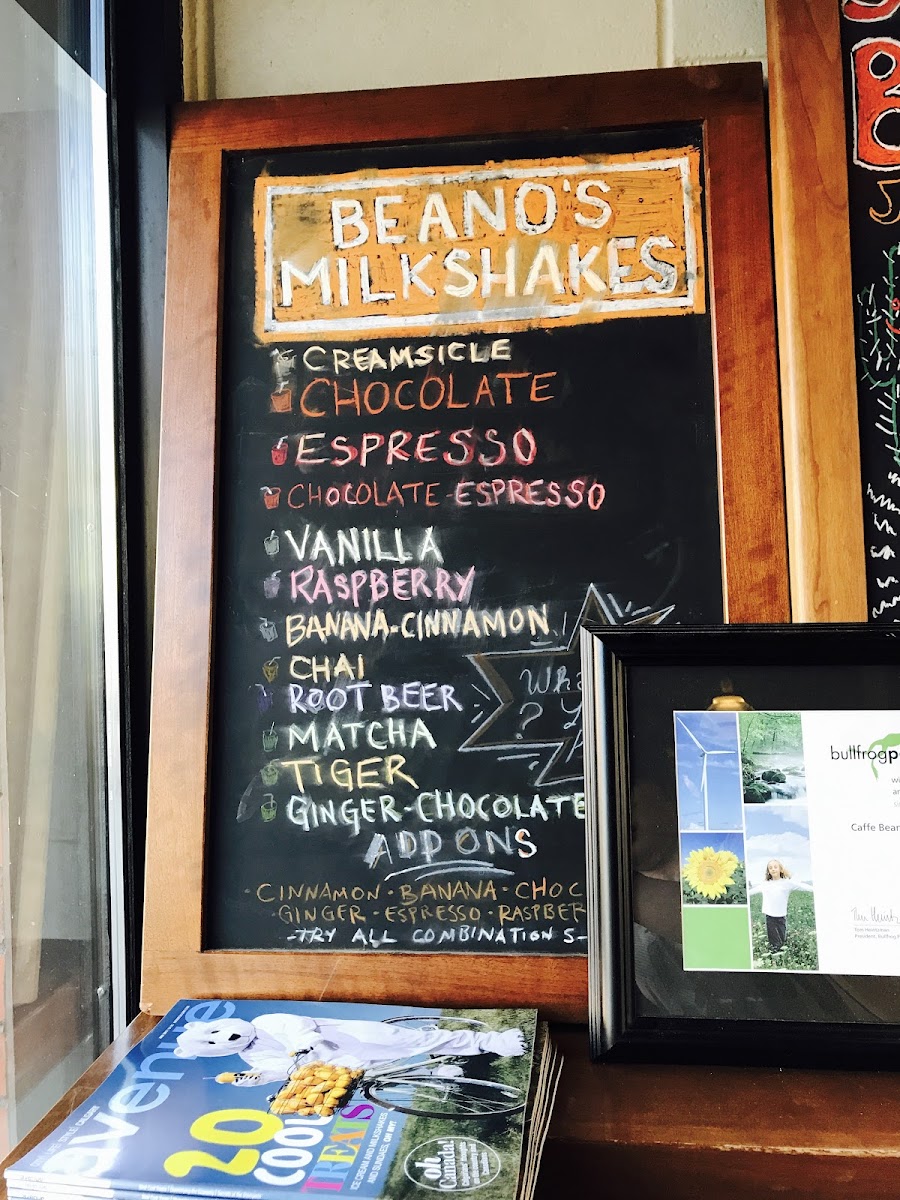 BEANO'S
MILKSHAKES
CREAMSICLE
CHOCOLATE
ESPRESSO
CHOCOLATE-ESPRESSO
VANILLA
RASPBERRY
BANANA-CINNAMON
CHAI
ROOT BEER
MATCHA
TIGER
GINGER-CHOCOLATE
ADD ONS
CINNAMON - BANANA - CHOC
GINGER - ESPRESSO - RASPBER
-TRY ALL COMBINATIONS-
Wha
?
bullfrogp
Caffe Bean
avenue
20
COOL
TREATS
ICE CREAM AND MILKSHAKES
AND SUNDAES, OH MY!
oh
Canada!